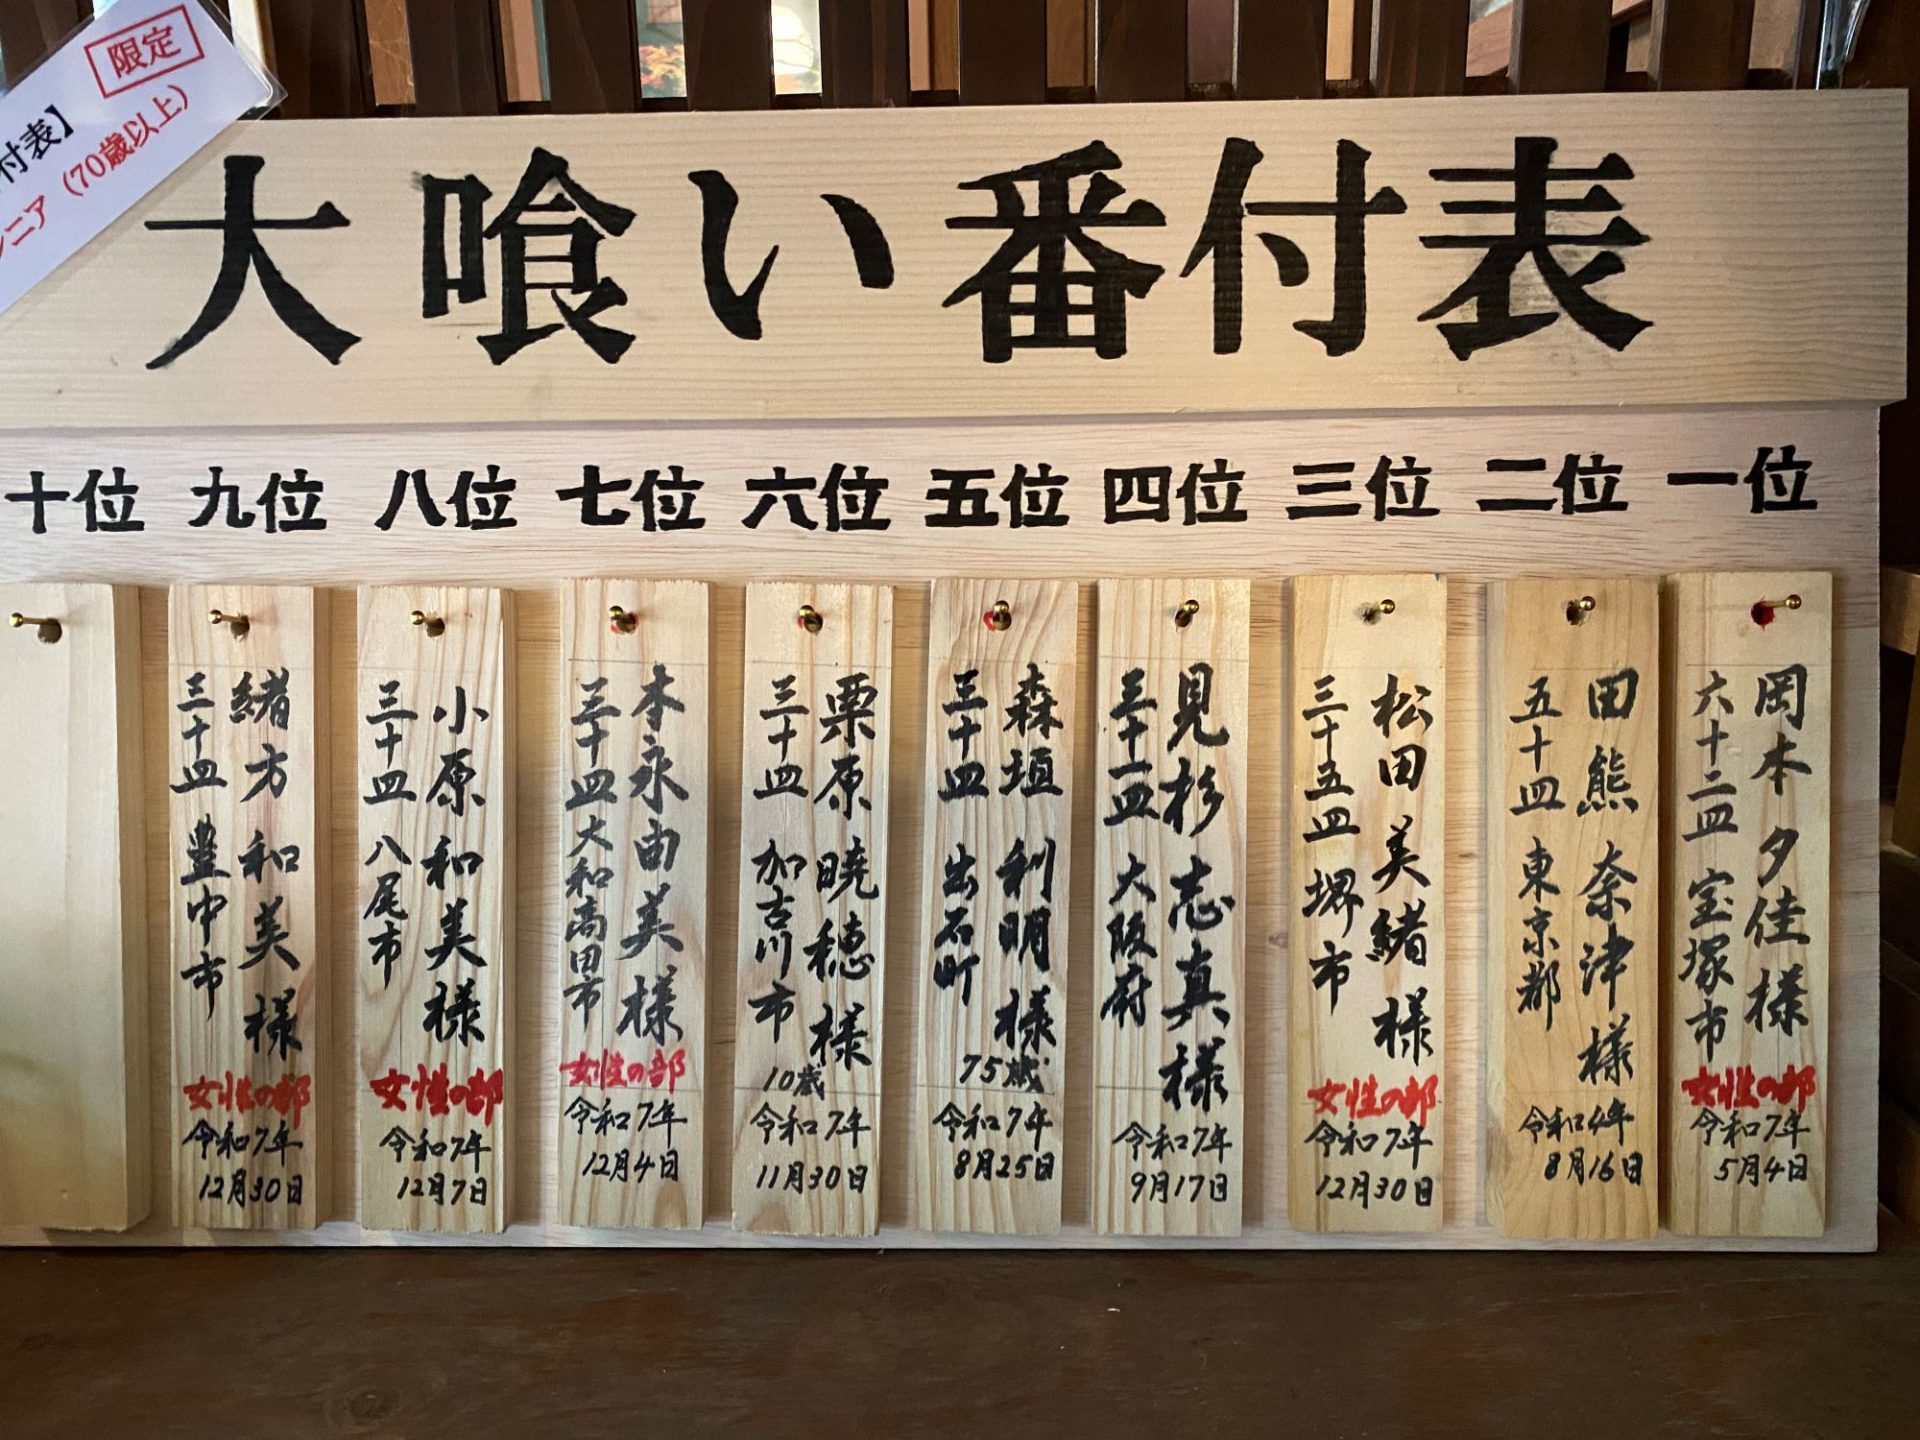 限定
付表】
ニア（70歳以上）
大喰い番付表
一位
二位
三位
四位
五位
六位
七位
八位
九位
十位
岡本夕佳様
六十二皿 宝塚市
女性の部
令和7年
5月4日
田熊奈津様
五十皿 東京都
令和4年
8月16日
松田美緒様
三十五皿 堺市
女性の部
令和7年
12月30日
見杉志真様
三十一皿 大阪府
令和7年
9月17日
森垣利明様
三十皿 出石町
75歳
令和7年
8月25日
栗原暁穂様
三十皿 加古川市
10歳
令和7年
11月30日
本永由美様
三十皿 大和高田市
女性の部
令和7年
12月4日
小原和美様
三十皿 八尾市
女性の部
令和7年
12月7日
緒方和美様
三十皿 豊中市
女性の部
令和7年
12月30日